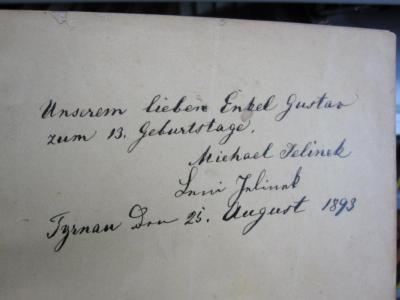 Unserem lieben Enkel Gustav
zum 13. Geburtstage.
Michael Jelinek
Leni Jelinek
Tyrnau den 25. August 1893